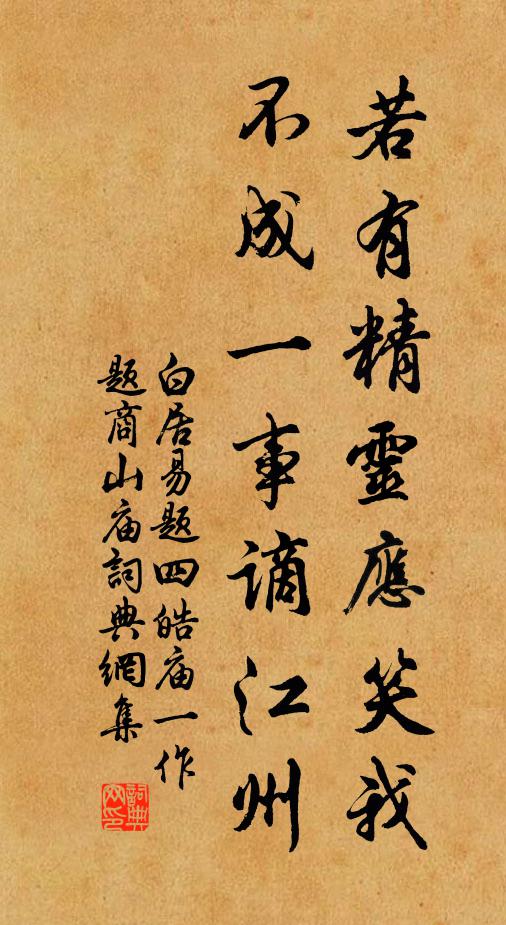 若有精靈應笑我
不成一事謫江州
白居易题四皓庙一作
题商山庙詞典網集
詞典
网印